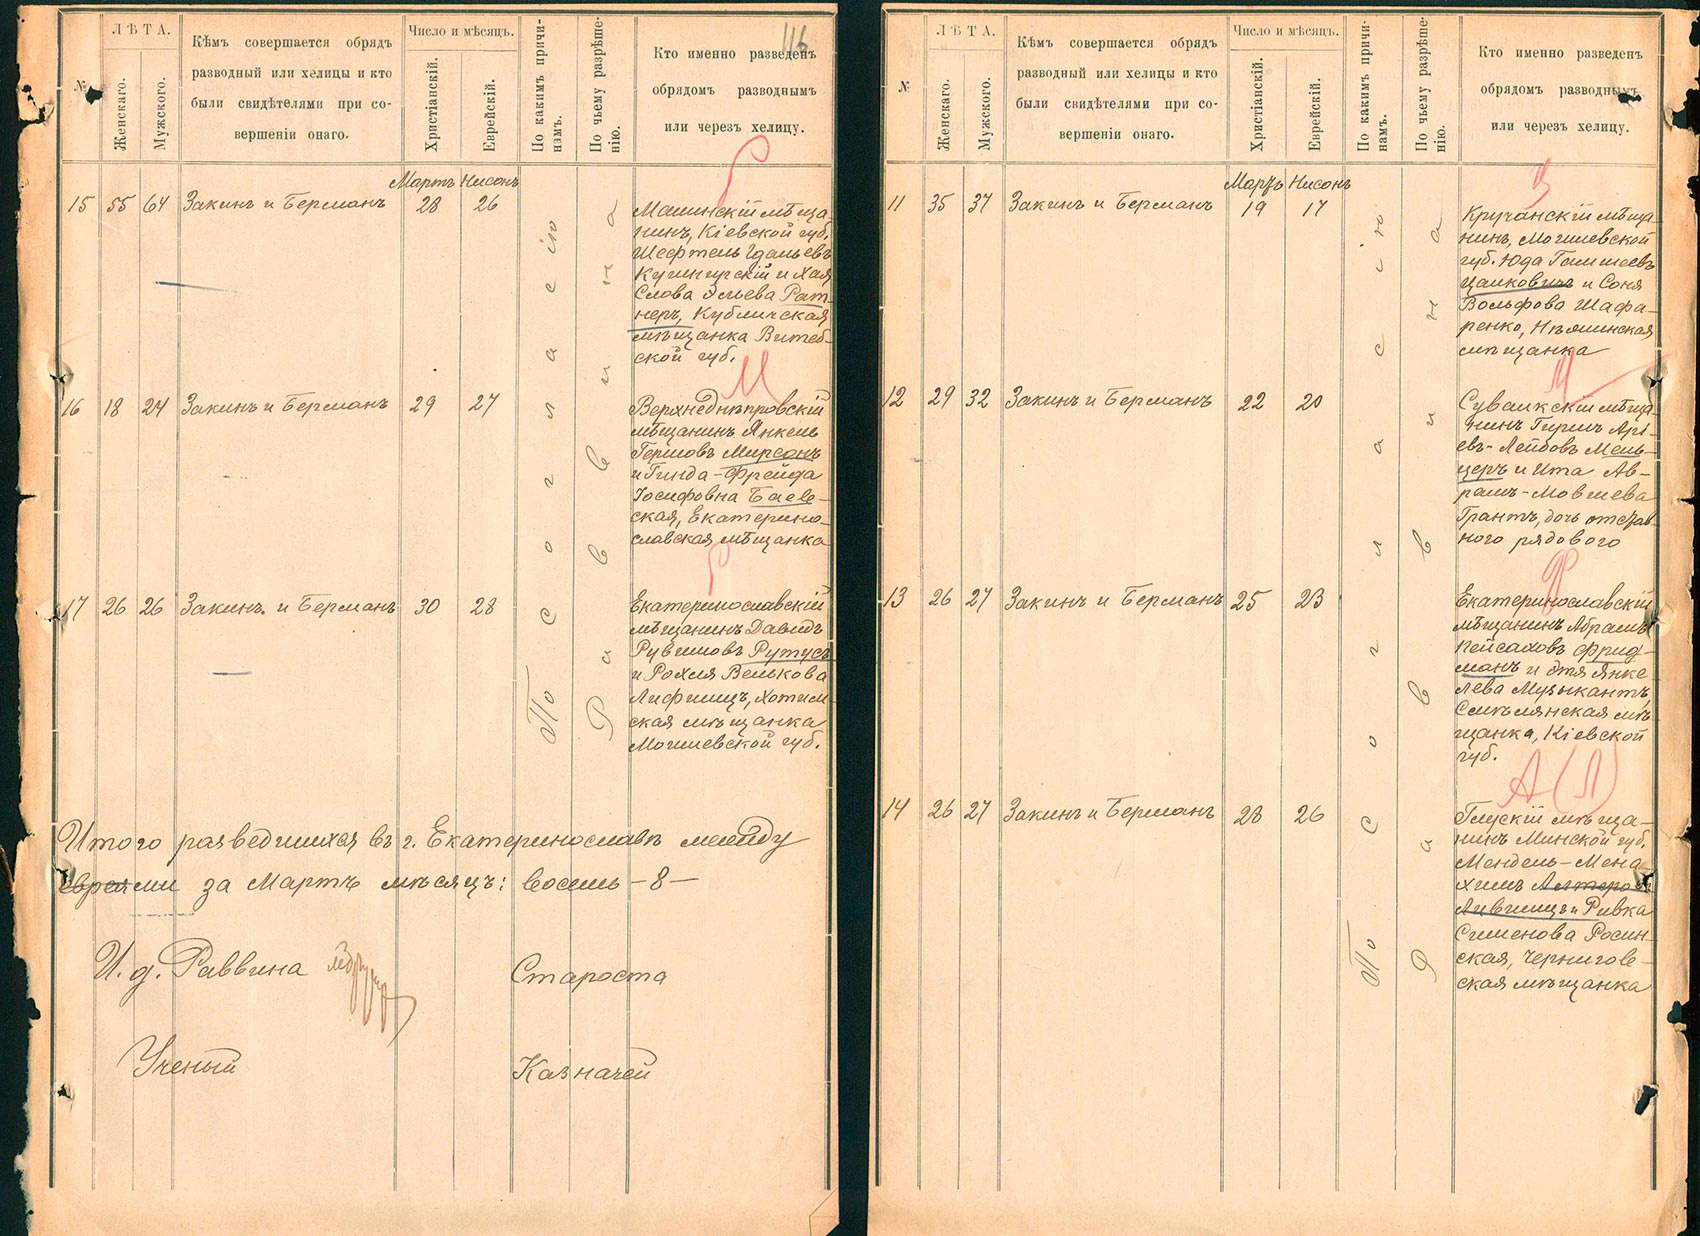 116
№
ЛѢТА.
Женскаго.
Мужского.
Кѣмъ совершается обрядъ
разводный или хелицы и кто
были свидѣтелями при со-
вершеніи онаго.
Число и мѣсяцъ.
Христіанскій.
Еврейскій.
По какимъ причи-
намъ.
По чьему разрѣше-
нію.
Кто именно разведенъ
обрядомъ разводнымъ
или черезъ хелицу.
Р
Мартъ Нисонъ
15 55 64 Закинъ и Берманъ 28 26
нинъ, Кіевской губ.
Шефтель
и Хая
Слова Рат-
неръ, Кубличская
мѣщанка Витеб-
ской губ.
М
16 18 24 Закинъ и Берманъ 29 27
Верхнеднѣпровскій
мѣщанинъ Янкель
Гершовъ Мирсонъ
и Гинда-Фрейда
Іосифовна Баев-
ская, Екатерино-
славская мѣщанка
Р
17 26 26 Закинъ и Берманъ 30 28
Екатеринославскій
мѣщанинъ Давидъ
Рувимовъ Рутусъ
и Рохля Велькова
Лифшицъ, Хотим-
ская мѣщанка
Могилевской губ.
По согласію
Раввина
Итого разведшихся въ г. Екатеринославѣ между
евреями за Мартъ мѣсяцъ: восемь -8-
И. д. Раввина
Староста
Ученый
Казначей
№
ЛѢТА.
Женскаго.
Мужского.
Кѣмъ совершается обрядъ
разводный или хелицы и кто
были свидѣтелями при со-
вершеніи онаго.
Число и мѣсяцъ.
Христіанскій.
Еврейскій.
По какимъ причи-
намъ.
По чьему разрѣше-
нію.
Кто именно разведенъ
обрядомъ разводнымъ
или черезъ хелицу.
Мартъ Нисонъ
11 35 37 Закинъ и Берманъ 19 17
Кручанскій мѣща-
нинъ, Могилевской
губ. Юда
и Соня
Вольфова Шафа-
ренко,
мѣщанка
М
12 29 32 Закинъ и Берманъ 22 20
Сувалкскій мѣща-
нинъ Гиршъ Арі-
евъ-Лейбовъ Мель-
церъ и Ита Ав-
рамъ-Мовшева
Грантъ, дочь отстав-
ного рядового
Ф
13 26 27 Закинъ и Берманъ 25 23
Екатеринославскій
мѣщанинъ Абрамъ
Пейсаховъ Фрид-
манъ и Этя Янке-
лева Музыкантъ,
Смѣлянская мѣ-
щанка, Кіевской
губ.
А (Л)
14 26 27 Закинъ и Берманъ 28 26
Глускій мѣща-
нинъ Минской губ.
Мендель-Мена-
химъ Алтеровъ
Лившицъ и Ривка
Сименова Росин-
ская, Чернигов-
ская мѣщанка
По согласію
Раввина